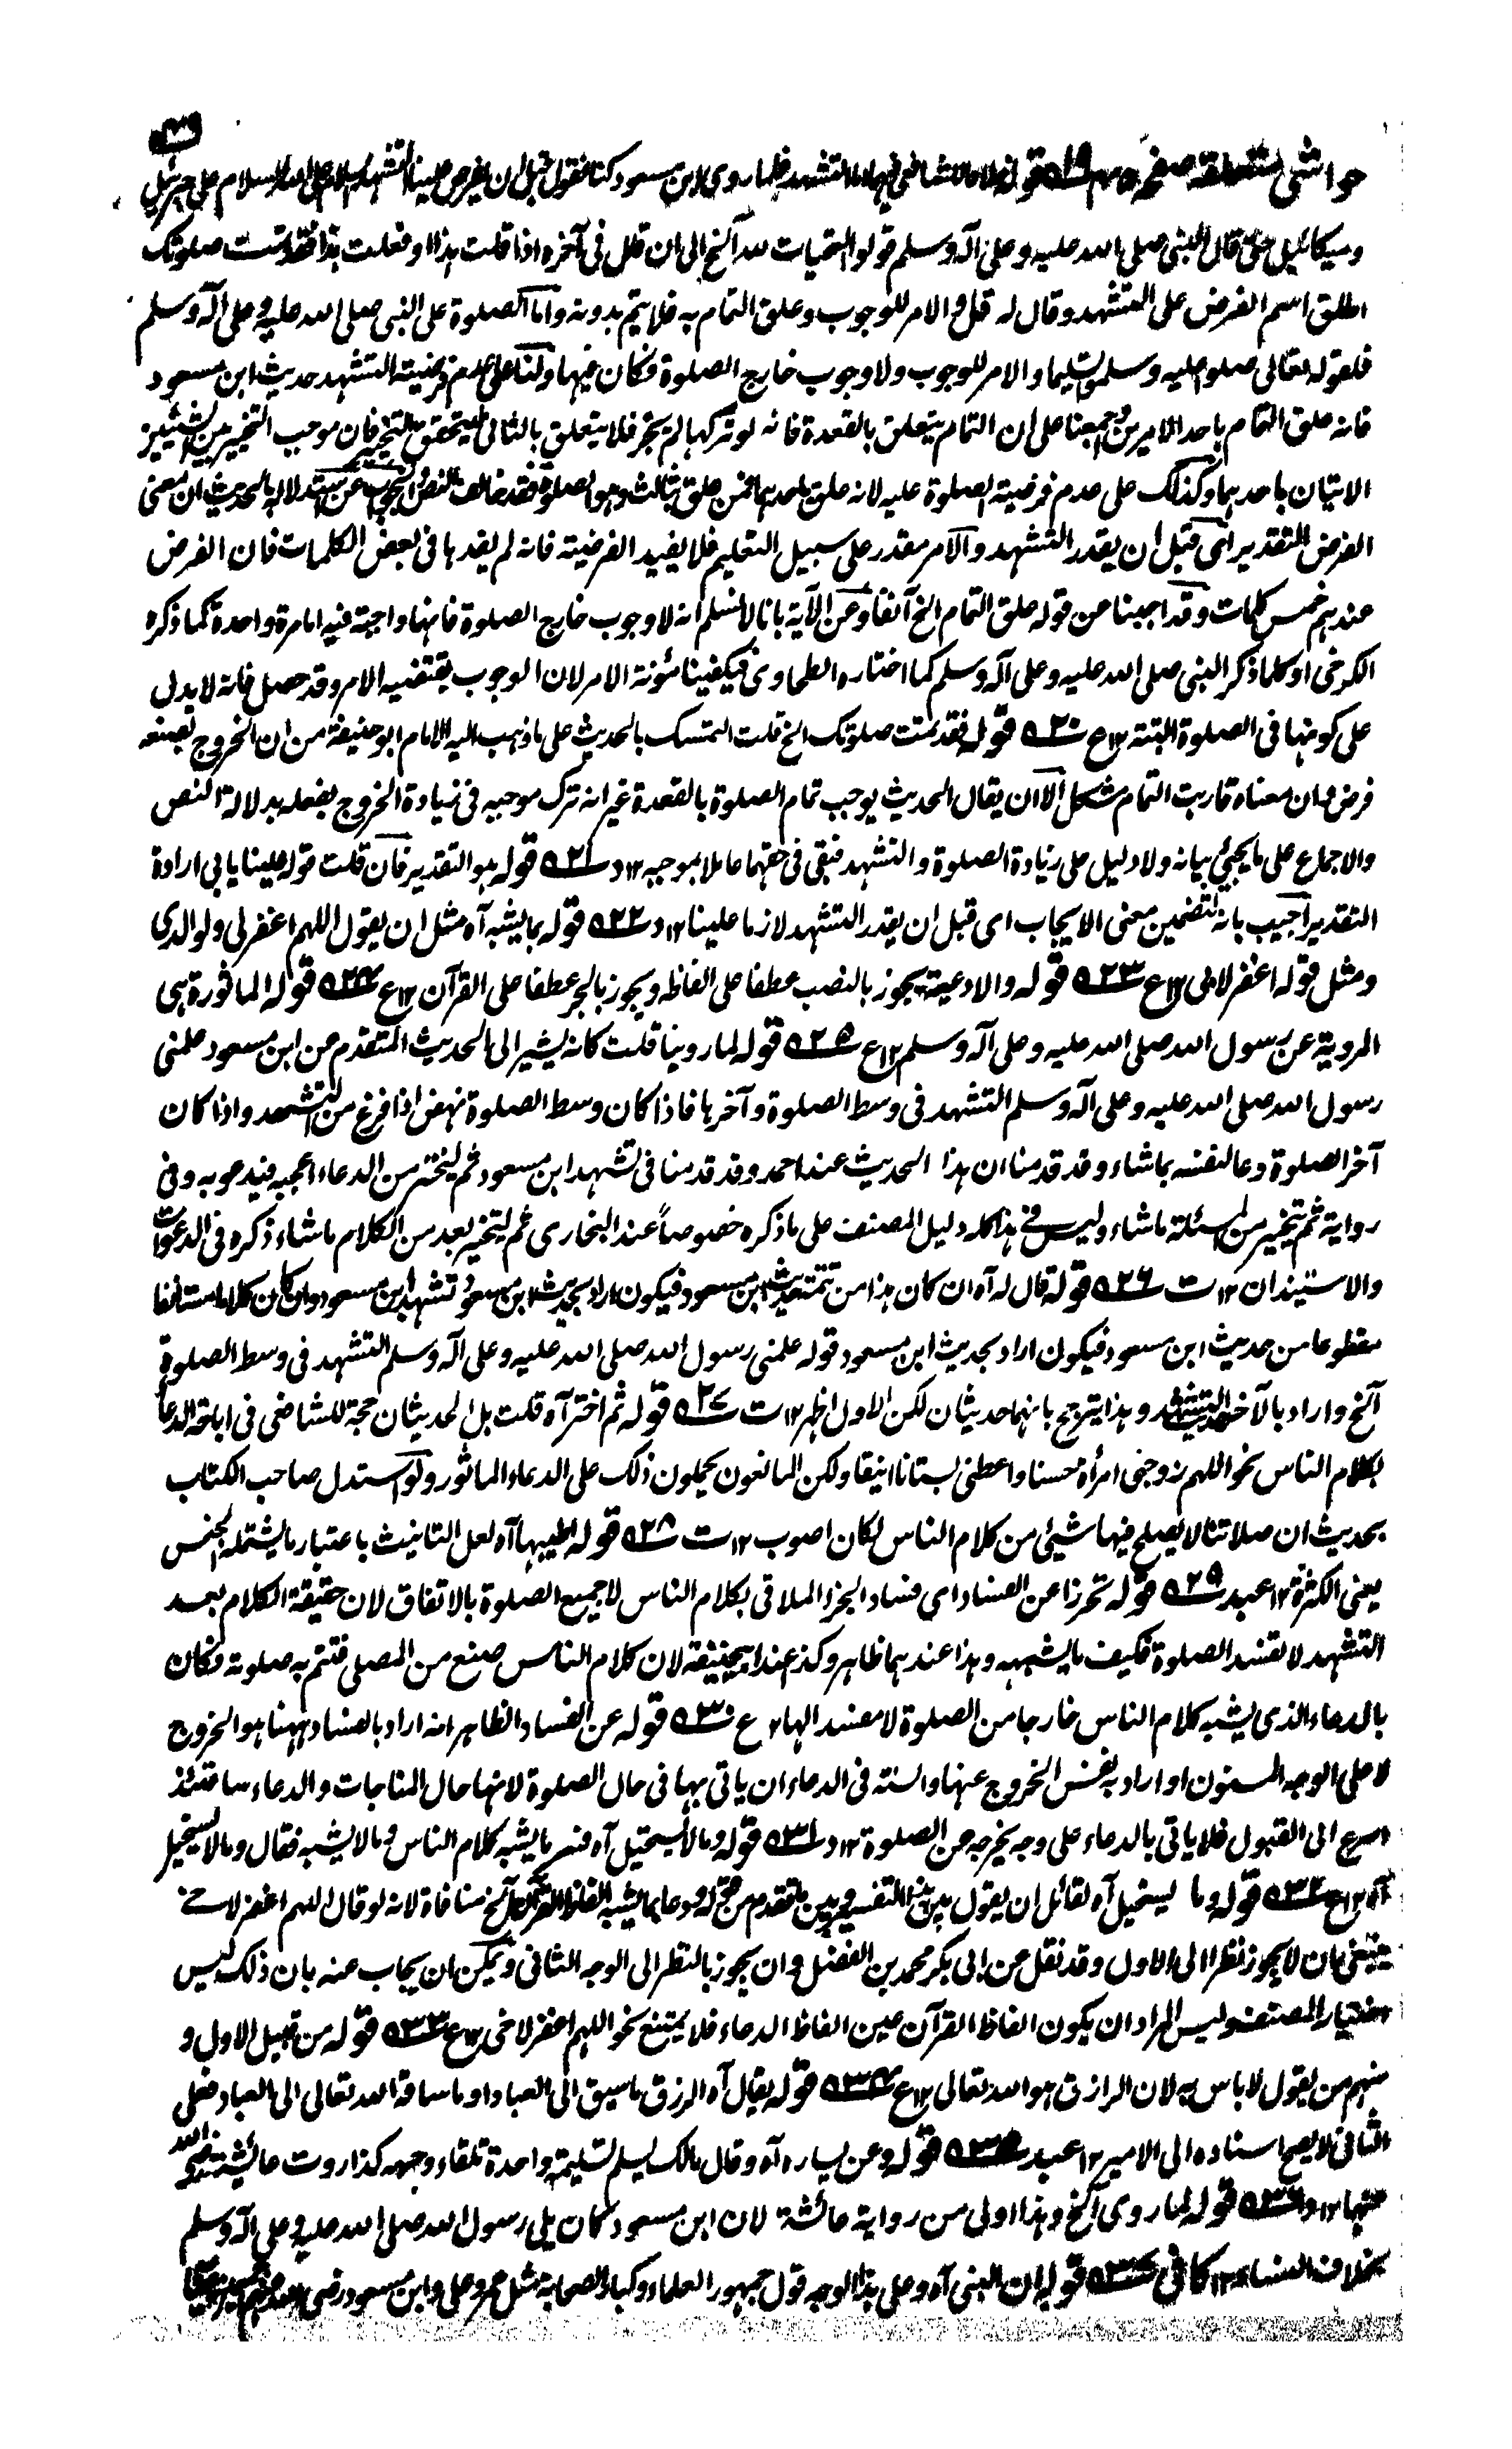 حواشی متعلقہ صفحہ ۵۱۹ قوله خلافا للشافعی فیهما اما التشهد فلما روی لابن مسعود کنا نقول قبل ان یفرض علینا التشهد السلام علی الله السلام علی جبرئیل
ومیکائیل حتی قال النبی صلی الله علیه وعلی آله وسلم قولوا التحیات لله آلخ الی ان قال فی آخره اذا قلت هذا او فعلت هذا فقد تمت صلوتک
اطلق اسم الفرض علی التشهد وقال له قل والامر للوجوب وعلق التمام به فلا یتم بدونه واما الصلوة علی النبی صلی الله علیه وعلی آله وسلم
فلقوله تعالی صلوا علیه وسلموا تسلیما والامر للوجوب ولا وجوب خارج الصلوة فکان فیها ولنا علی عدم فرضیة التشهد حدیث ابن مسعود
فانه علق التمام باحد الامرین واجمعنا علی ان التمام یتعلق بالقعدة فانه لو ترکها لم یجز فلا یتعلق بالثانی لیتحقق التخییر فان موجب التخییر بین الشیئین
الاتیان باحدهما وکذلک علی عدم فرضیة الصلوة علیه لانه علق باحدهما فمن علق بثالث وهو الصلوة فقد خالف النص والجواب عن استدلاله بالحدیث ان معنی
الفرض التقدیر ای قبل ان یقدر التشهد والامر مقدر علی سبیل التعلیم فلا یفید الفرضیة فانه لم یفدها فی بعض الکلمات فان الفرض
عندهم خمس کلمات وقد اجبنا عن قوله علق التمام الخ آنفا وعن الآیة بانا لا نسلم انه لا وجوب خارج الصلوة فانها واجبة فیه امامرة واحدة کما ذکره
الکرخی او کلما ذکر النبی صلی الله علیه وعلی آله وسلم کما اختاره الطحاوی فیکفینا مئونة الامر لان الوجوب یقتضیه الامر وقد حصل فانه لا یدل
علی کونها فی الصلوة البتة ۱۲ع ۵۲۰ قوله فقد تمت صلوتک الخ قلت التمسک بالحدیث علی ما ذهب الیه الامام ابو حنیفة من ان الخروج بصنعه
فرض وان معناه قاربت التمام مشکل الا ان یقال الحدیث یوجب تمام الصلوة بالقعدة غیر انه ترک موجبه فی زیادة الخروج بفعله بدلالة النص
والاجماع علی ما یجیئ بیانه ولا دلیل علی زیادة الصلوة والتشهد فبقی فی حقهما عاملا بموجبه ۱۲ د ۵۲۱ قوله هو التقدیر فان قلت قوله علینا یابی ارادة
التقدیر اجیب بانه لتضمین معنی الایجاب ای قبل ان یقدر التشهد لازما علینا ۱۲ د ۵۲۲ قوله بما یشبه آه مثل ان یقول اللهم اغفر لی ولوالدی
ومثل قوله اغفر لابی ۱۲ع ۵۲۳ قوله والادعیة یجوز بالنصب عطفا علی الفاظه ویجوز بالجر عطفا علی القرآن ۱۲ع ۵۲۴ قوله الماثورة هی
المرویة عن رسول الله صلی الله علیه وعلی آله وسلم ۱۲ع ۵۲۵ قوله لما روینا قلت کانه یشیر الی الحدیث المتقدم عن ابن مسعود علمنی
رسول الله صلی الله علیه وعلی آله وسلم التشهد فی وسط الصلوة وآخرها فاذا کان وسط الصلوة نهض اذا فرغ من التشهد واذا کان
آخر الصلوة دعا لنفسه بما شاء وقد قدمنا ان هذا الحدیث عند احمد وقد قدمنا فی تشهد ابن مسعود ثم لیختر من الدعاء اعجبه فیدعو به وفی
روایة ثم یتخیر من المسئلة ما شاء ولیس فی هذا کله دلیل المصنف علی ما ذکره خصوصاً عند البخاری ثم لیتخیر بعد من الکلام ما شاء ذکره فی الدعوات
والاستیذان ۱۲ ت ۵۲۶ قوله قال له آه ان کان هذا من تتمة حدیث ابن مسعود فیکون اراد بحدیث ابن مسعود تشهد ابن مسعود وان کان کلاما مستانفا
مقطوعا من حدیث ابن مسعود فیکون اراد بحدیث ابن مسعود قوله علمنی رسول الله صلی الله علیه وعلی آله وسلم التشهد فی وسط الصلوة
آلخ واراد بالآخر التشهد وهذا یترجح بانهما حدیثان لکن الاول اظهر ۱۲ ت ۵۲۷ قوله ثم اختر آه قلت بل الحدیثان حجة للشافعی فی اباحة الدعا
بکلام الناس نحو اللهم زوجنی امرأة حسنا واعطنی بستانا انیقا ولکن المانعون یحملون ذلک علی الدعاء الماثور ولو استدل صاحب الکتاب
بحدیث ان صلاتنا لا یصلح فیها شیئ من کلام الناس لکان اصوب ۱۲ ت ۵۲۸ قوله اطیبها آه لعل التانیث باعتبار ما یشتمله الجنس
یعنی الکثرة ۱۲ عبد ۵۲۹ قوله تحرزا عن الفساد ای فساد الجزء الملاقی بکلام الناس لا جمیع الصلوة بالاتفاق لان حقیقة الکلام بعد
التشهد لا تفسد الصلوة فکیف ما یشبهه وهذا عندهما ظاهر وکذا عند ابیحنیفة لان کلام الناس صنع من المصلی فتتم به صلوته فکان
بالدعاء الذی یشبه کلام الناس خارجا من الصلوة لا مفسدا لها ۱۲ ع ۵۳۰ قوله عن الفساد الظاهر انه اراد بالفساد ههنا هو الخروج
لا علی الوجه المسنون او اراد به نفس الخروج عنها والسنة فی الدعاء ان یاتی بها فی حال الصلوة لانها حال المناجات والدعاء ساعتئذ
اسرع الی القبول فلا یاتی بالدعاء علی وجه یخرجه من الصلوة ۱۲ د ۵۳۱ قوله وما لا یستحیل آه فسر ما یشبه کلام الناس وما لا یشبه فقال وما لا یستحیل
آه ۱۲ع ۵۳۲ قوله وما یستحیل آه لقائل ان یقول بین هذا التفسیر وبین ما تقدم من قوله ودعا بما یشبه الفاظ القرآن آلخ منافاة لانه لو قال اللهم اغفر لاخی
ینبغی ان لا یجوز نظرا الی الاول وقد نقل عن ابی بکر محمد بن الفضل وان یجوز بالنظر الی الوجه الثانی ویمکن ان یجاب عنه بان ذلک لیس
اختیار المصنف ولیس المراد ان یکون الفاظ القرآن عین الفاظ الدعاء فلا یمتنع نحو اللهم اغفر لاخی ۱۲ع ۵۳۳ قوله من قبیل الاول و
منهم من یقول لا باس به لان الرازق هو الله تعالی ۱۲ع ۵۳۴ قوله یقال آه الرزق ما سیق الی العباد او ما ساقه الله تعالی الی العباد فعلی
الثانی لا یصح اسناده الی الامیر ۱۲ عبد ۵۳۵ قوله وعن یساره آه وقال مالک یسلم تسلیمة واحدة تلقاء وجهه کذا روت عائشة رضی الله
عنها ۱۲ د ۵۳۶ قوله لما روی آلخ وهذا اولی من روایة عائشة لان ابن مسعود کان یلی رسول الله صلی الله علیه وعلی آله وسلم
بخلاف النساء ۱۲ کافی ۵۳۷ قوله ان النبی آه وعلی هذا الوجه قول جمهور العلماء وکبار الصحابة مثل عمر وعلی وابن مسعود رضی الله عنهم